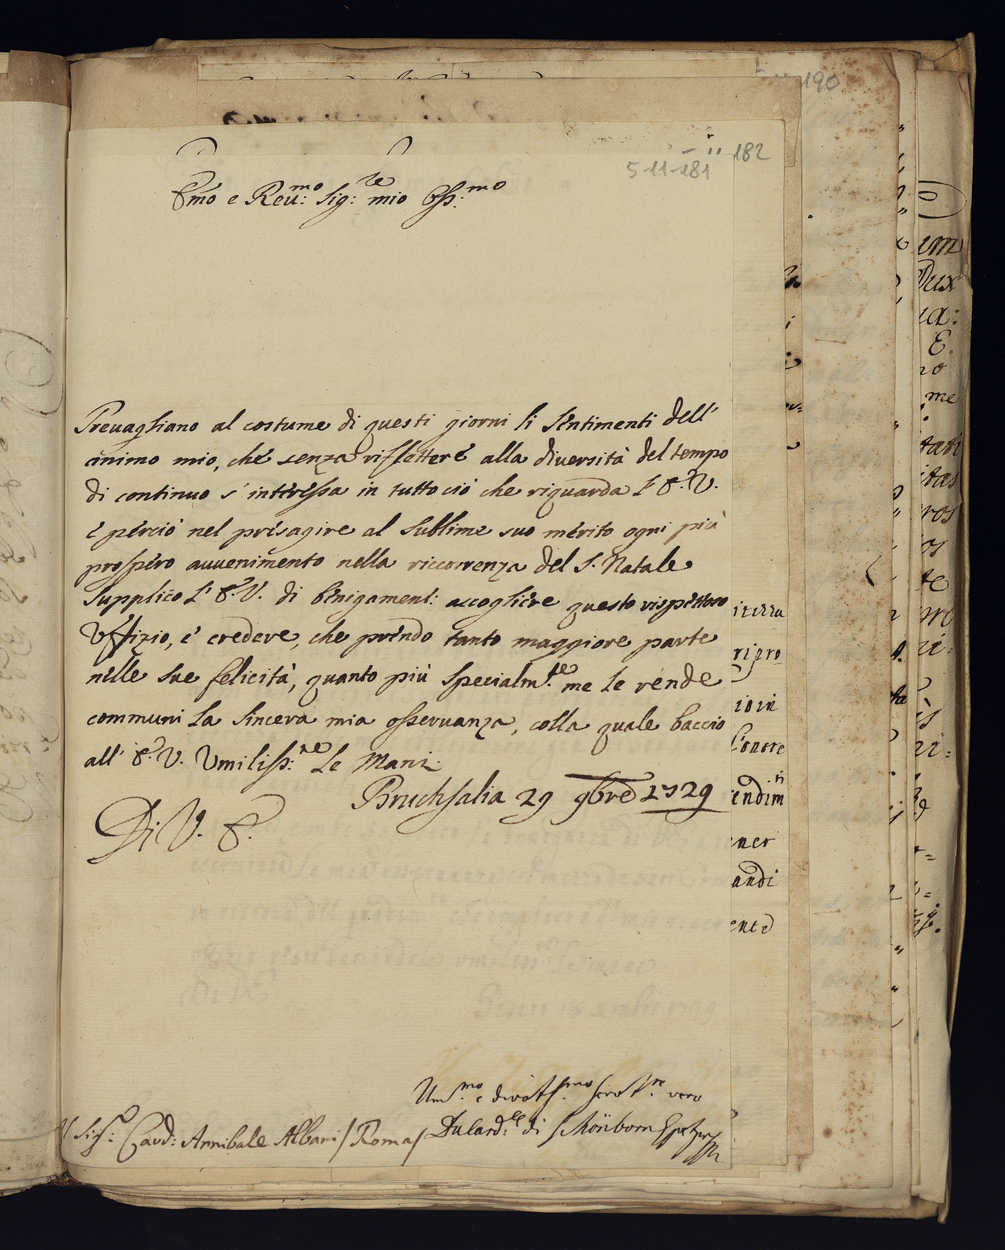 190
182
5-11-181
Emo e Reu:mo Sig:re mio Oss:mo
Preuagliano al costume di questi giorni li sentimenti dell'
animo mio, che senza riflettere alla diuersità del tempo
di continuo s' interessa in tutto ciò che riguarda l' E. V.
è perciò nel presagire al sublime suo merito ogni più
prospero auuenimento nella riccorrenza del S. Natale
supplico l' E. V. di benigament: accogliere questo rispettoso
Uffizio, e credere, che prendo tanto maggiore parte
nelle sue felicità, quanto più specialm:te me le rende
communi la sincera mia osseruanza, colla quale baccio
all' E. V. Umiliss:me le Mani
Bruchsalia 29 9bre 1729
Di V. E.
Um:mo e diuotss:mo seruit:re vero
Sig: Card: Annibale Albani / Roma /
Card:le di Schönborn